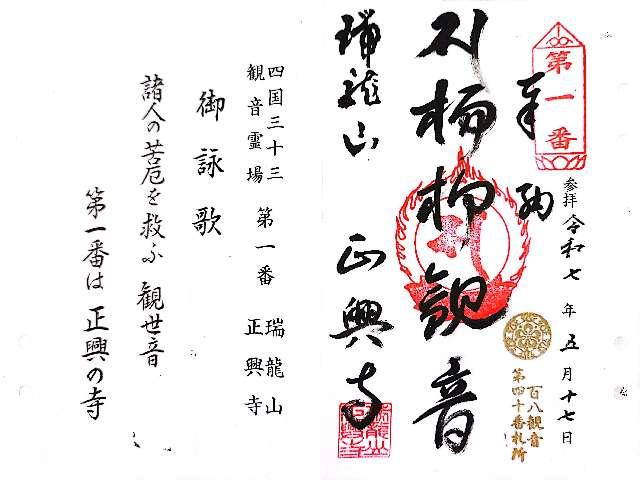 第一番
奉納
参拝 令和七年五月十七日
百八観音
第四十番札所
楊柳観音
瑞龍山 正興寺
四国三十三
観音霊場 第一番 瑞龍山
正興寺
御詠歌
諸人の苦厄を救ふ 観世音
第一番は 正興の寺